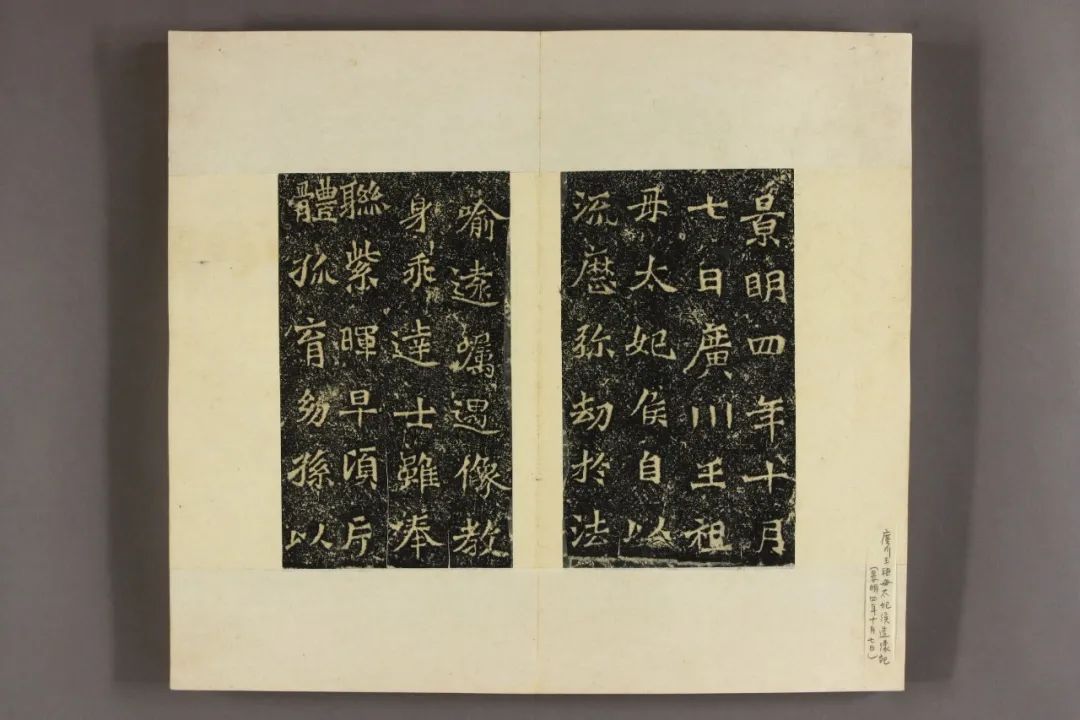 景明四年十月
七日廣川王祖
母太妃侯自以
流歷弥劫於法
喻遠囑遇像教
身乖達士雖奉
聯紫暉早頃片
體孤育㓜孫以
廣川王祖母太妃侯造像記
(景明四年十月七日)